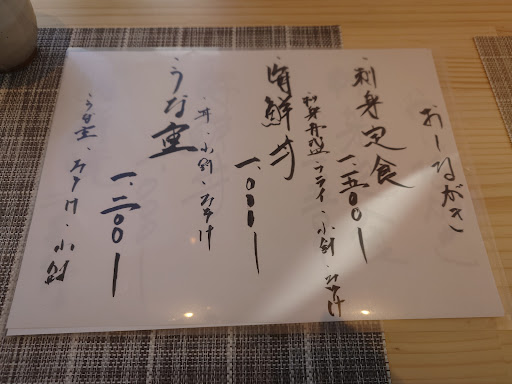 おしながき
刺身定食
一、五〇〇ー
刺身五点盛、フライ、小鉢、みそ汁
海鮮丼
一、〇〇〇ー
丼、小鉢、みそ汁
うな重
一、二〇〇ー
うな重、みそ汁、小鉢